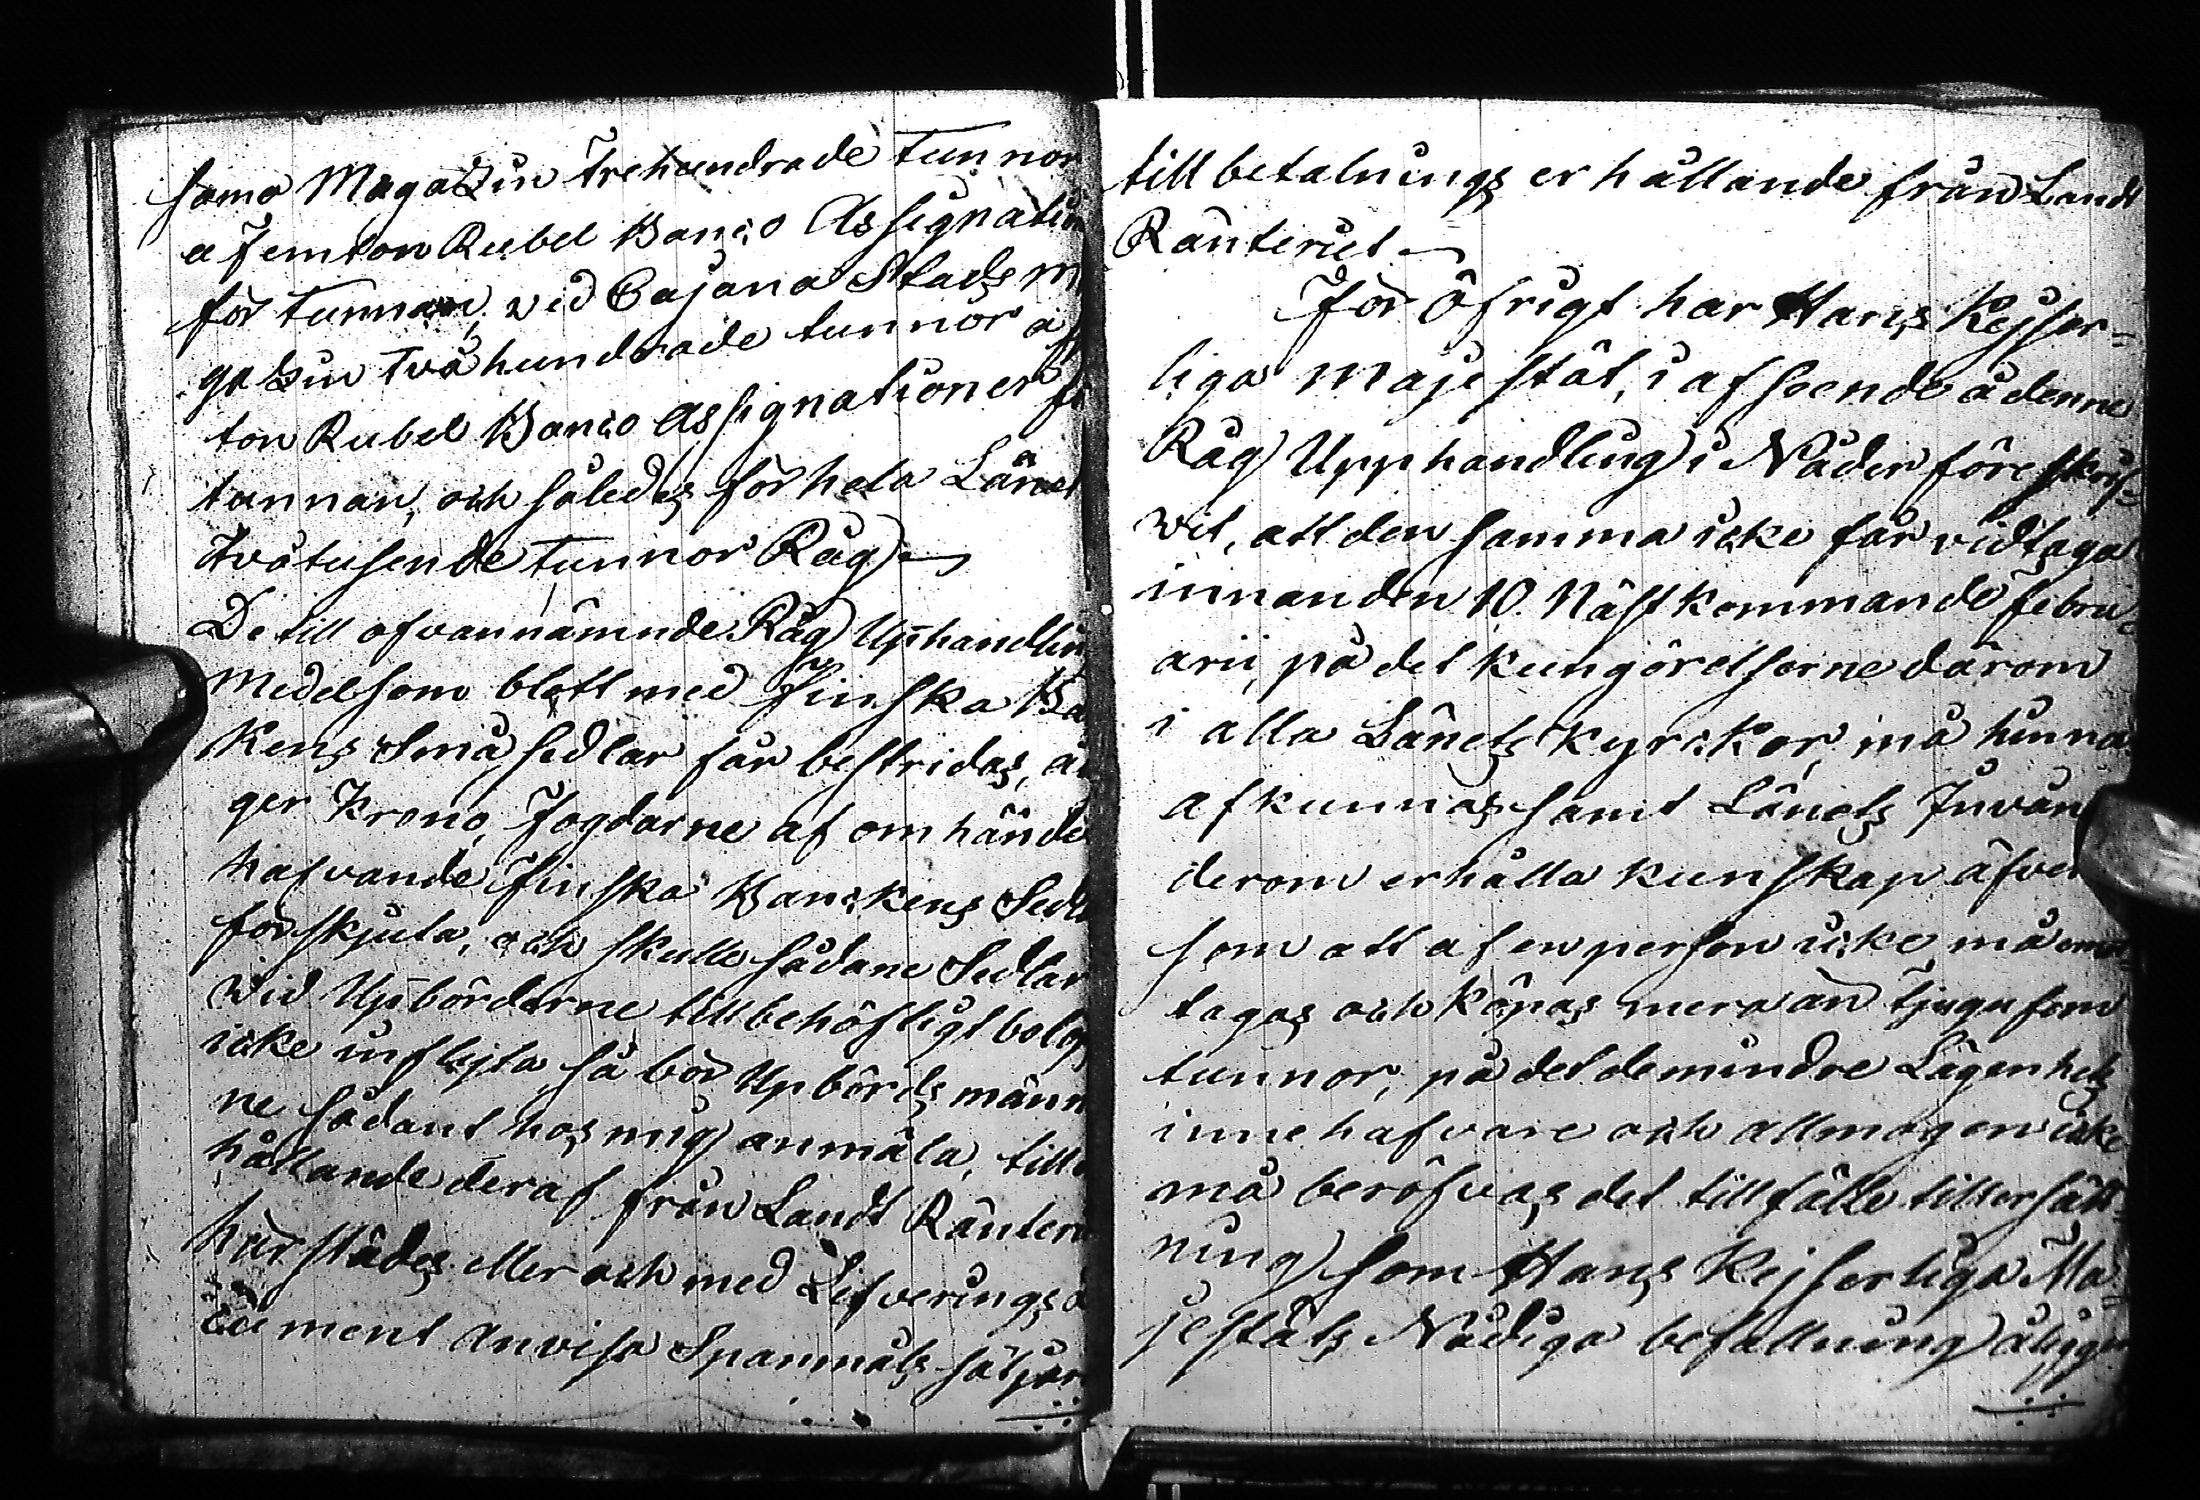 samo Magazin Trehundrade Tunnor
a femton Rubel Banco Assignation
för Tunnan, vid Cajana Stads M
gazin Tvåhundrade tunnor a f
ton Rubel Banco Assignationer fö
tunnan, och således för hela Länet
Tvåtusende Tunnor Råg
De till ofvannämnde Råg Uphandlin
Medel som blott med Finska Ba
kens Små sedlar får bestridas, äi
ger Krono Fogdarne af om händer
hafvande Finska Banckens Sedl
förskjuta, och skulle sådane Sedlar
wid Upbörderne tillbehöfligt belop
icke inflyta så bör Upbörds männ
ne sådant hos mig anmäla, till
hållande deraf från Landt Ränteri
härstädes eller och med Lefverings d
cument Anvisa Spanmåls säljare
till betalnings erhållande från Landt
Ränteriet
För Öfrigt har Hans Kejser-
liga Majestät, i afseende å denne
Råg Upphandling i Nåder föreskrif-
vit, att den samma icke får vidtaga
innan den 10. Nästkommande Febru-
arii, på det kungörelserne därom
i alla Länets kyrckor må hinna
afkunnas samt Länets Invån
derom erhålla kunskap äfven
som att af en person icke må emot-
tagas och köpas mera än Tjugufem
tunnor, på det de mindre Lägenhets
innehafvare och allmogen icke
må beröfvas det tillfälle till ersätt-
ning som Hans Kejserliga Ma-
jestäts Nådiga befallning åligger